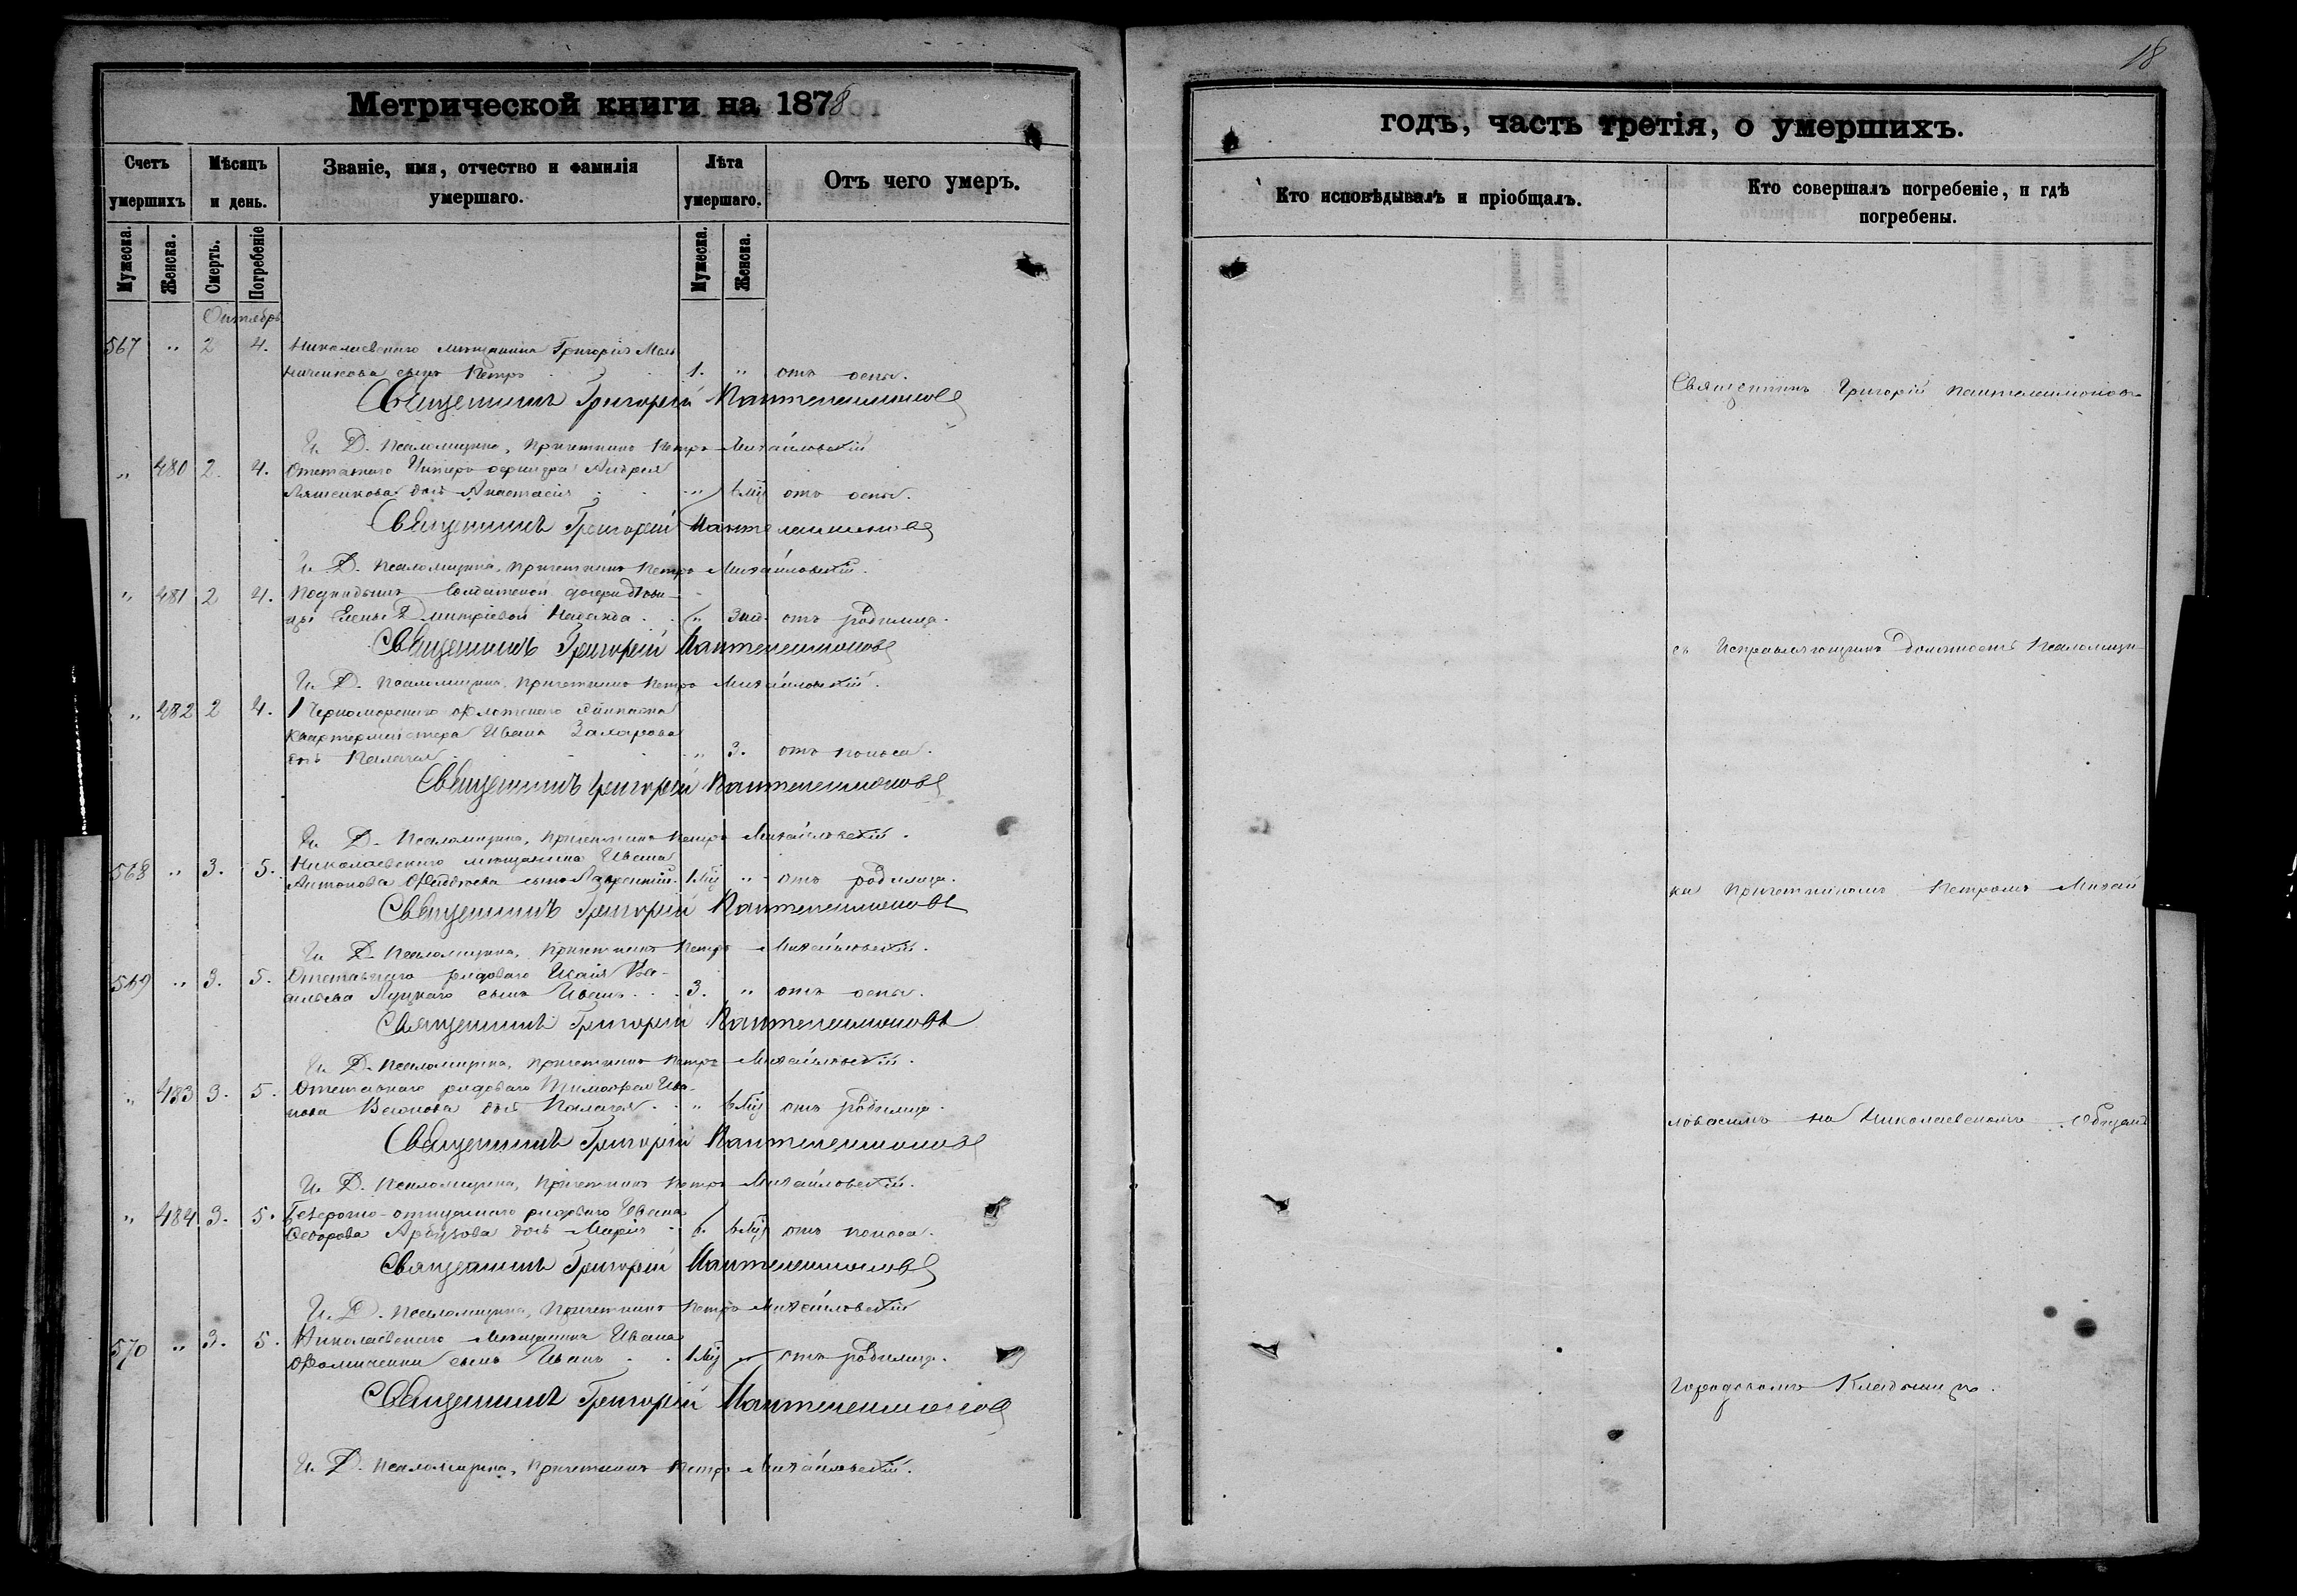 18
Метрической книги на 1878
годъ, часть третія, о умершихъ.
Счетъ умершихъ
Мѣсяцъ и день.
Званіе, имя, отчество и фамилія умершаго.
Лѣта умершаго.
Отъ чего умеръ.
Кто исповѣдывалъ и пріобщалъ.
Кто совершалъ погребеніе, и гдѣ погребены.
Мужеска. Женска. Смерть. Погребеніе Мужеска. Женска.
Октябрь
567 „ 2 4. Николаевскаго мѣщанина Григорія
сынъ Петръ 1. „ отъ оспы.
Священникъ Григорій Пантелеимоновъ
И. Д. Псаломщика, Причетникъ Петръ Михайловскій
„ 480 2. 4. Отставнаго Унтеръ-офицера Андрея
Ляшенкова дочь Анастасія „ отъ оспы.
Священникъ Григорій Пантелеимоновъ
И. Д. Псаломщика, Причетникъ Петръ Михайловскій.
„ 481 2 4. Подкидышъ Солдатской дочери дѣви-
цы Елены Дмитріевой Надежда „ отъ родимца.
Священникъ Григорій Пантелеимоновъ
И. Д. Псаломщика, Причетникъ Петръ Михайловскій.
„ 482 2 4. 1 Черноморскаго флотскаго экипажа
квартермистера Ивана Захарова
дочь Пелагея „ 3. отъ поноса.
Священникъ Григорій Пантелеимоновъ
И. Д. Псаломщика, Причетникъ Петръ Михайловскій.
568 „ 3. 5. Николаевскаго мѣщанина Ивана
Антонова сынъ Лаврентій. „ отъ родимца.
Священникъ Григорій Пантелеимоновъ
И. Д. Псаломщика, Причетникъ Петръ Михайловскій.
569 „ 3. 5. Отставнаго рядоваго Исаія Ва-
сильева Луцкаго сынъ Иванъ 3. „ отъ оспы.
Священникъ Григорій Пантелеимоновъ
И. Д. Псаломщика, Причетникъ Петръ Михайловскій.
„ 483 3. 5. Отставнаго рядоваго Тимофея Ива-
нова дочь Пелагея „ отъ родимца.
Священникъ Григорій Пантелеимоновъ
И. Д. Псаломщика, Причетникъ Петръ Михайловскій.
„ 484 3. 5. Безсрочно-отпускнаго рядоваго Ивана
Федорова Арбузова дочь Марія отъ поноса.
Священникъ Григорій Пантелеимоновъ
И. Д. Псаломщика, Причетникъ Петръ Михайловскій
570 „ 3. 5. Николаевскаго мѣщанина Ивана
Фоминченки сынъ Иванъ „ отъ родимца.
Священникъ Григорій Пантелеимоновъ
И. Д. Псаломщика, Причетникъ Петръ Михайловскій.
Священникъ Григорій Пантелеимоновъ
съ Исправляющимъ должность Псаломщи-
ка Причетникомъ Петромъ Михай
ловскимъ на Николаевскомъ
Городскомъ Кладбищѣ.